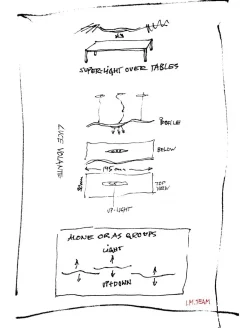 x3
SUPER-LIGHT OVER TABLES
LUCE VOLANTE
PROFILE
BELOW
TOP
VIEW
UP-LIGHT
ALONE OR AS GROUPS
LIGHT
UP+DOWN
I.M.TEAM